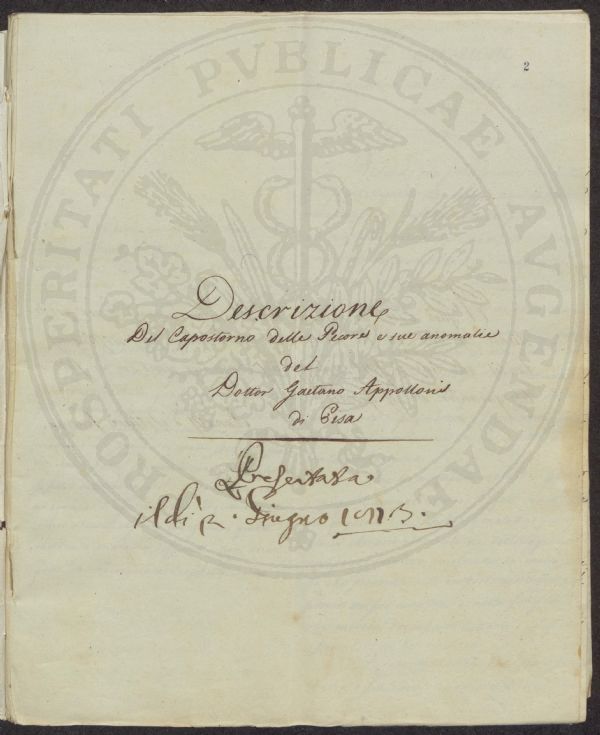 2
PROSPERITATI PVBLICAE AVGENDAE
Descrizione
Del Capostorno delle Pecore e sue anomalie
del
Dottor Gaetano Appolloni
di Pisa
Presentata
il dì Giugno